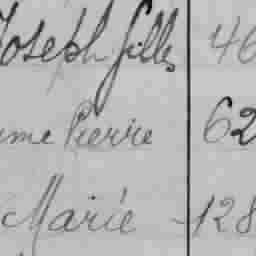 Joseph Gilles 46
me Pierre 62
Marie - 128